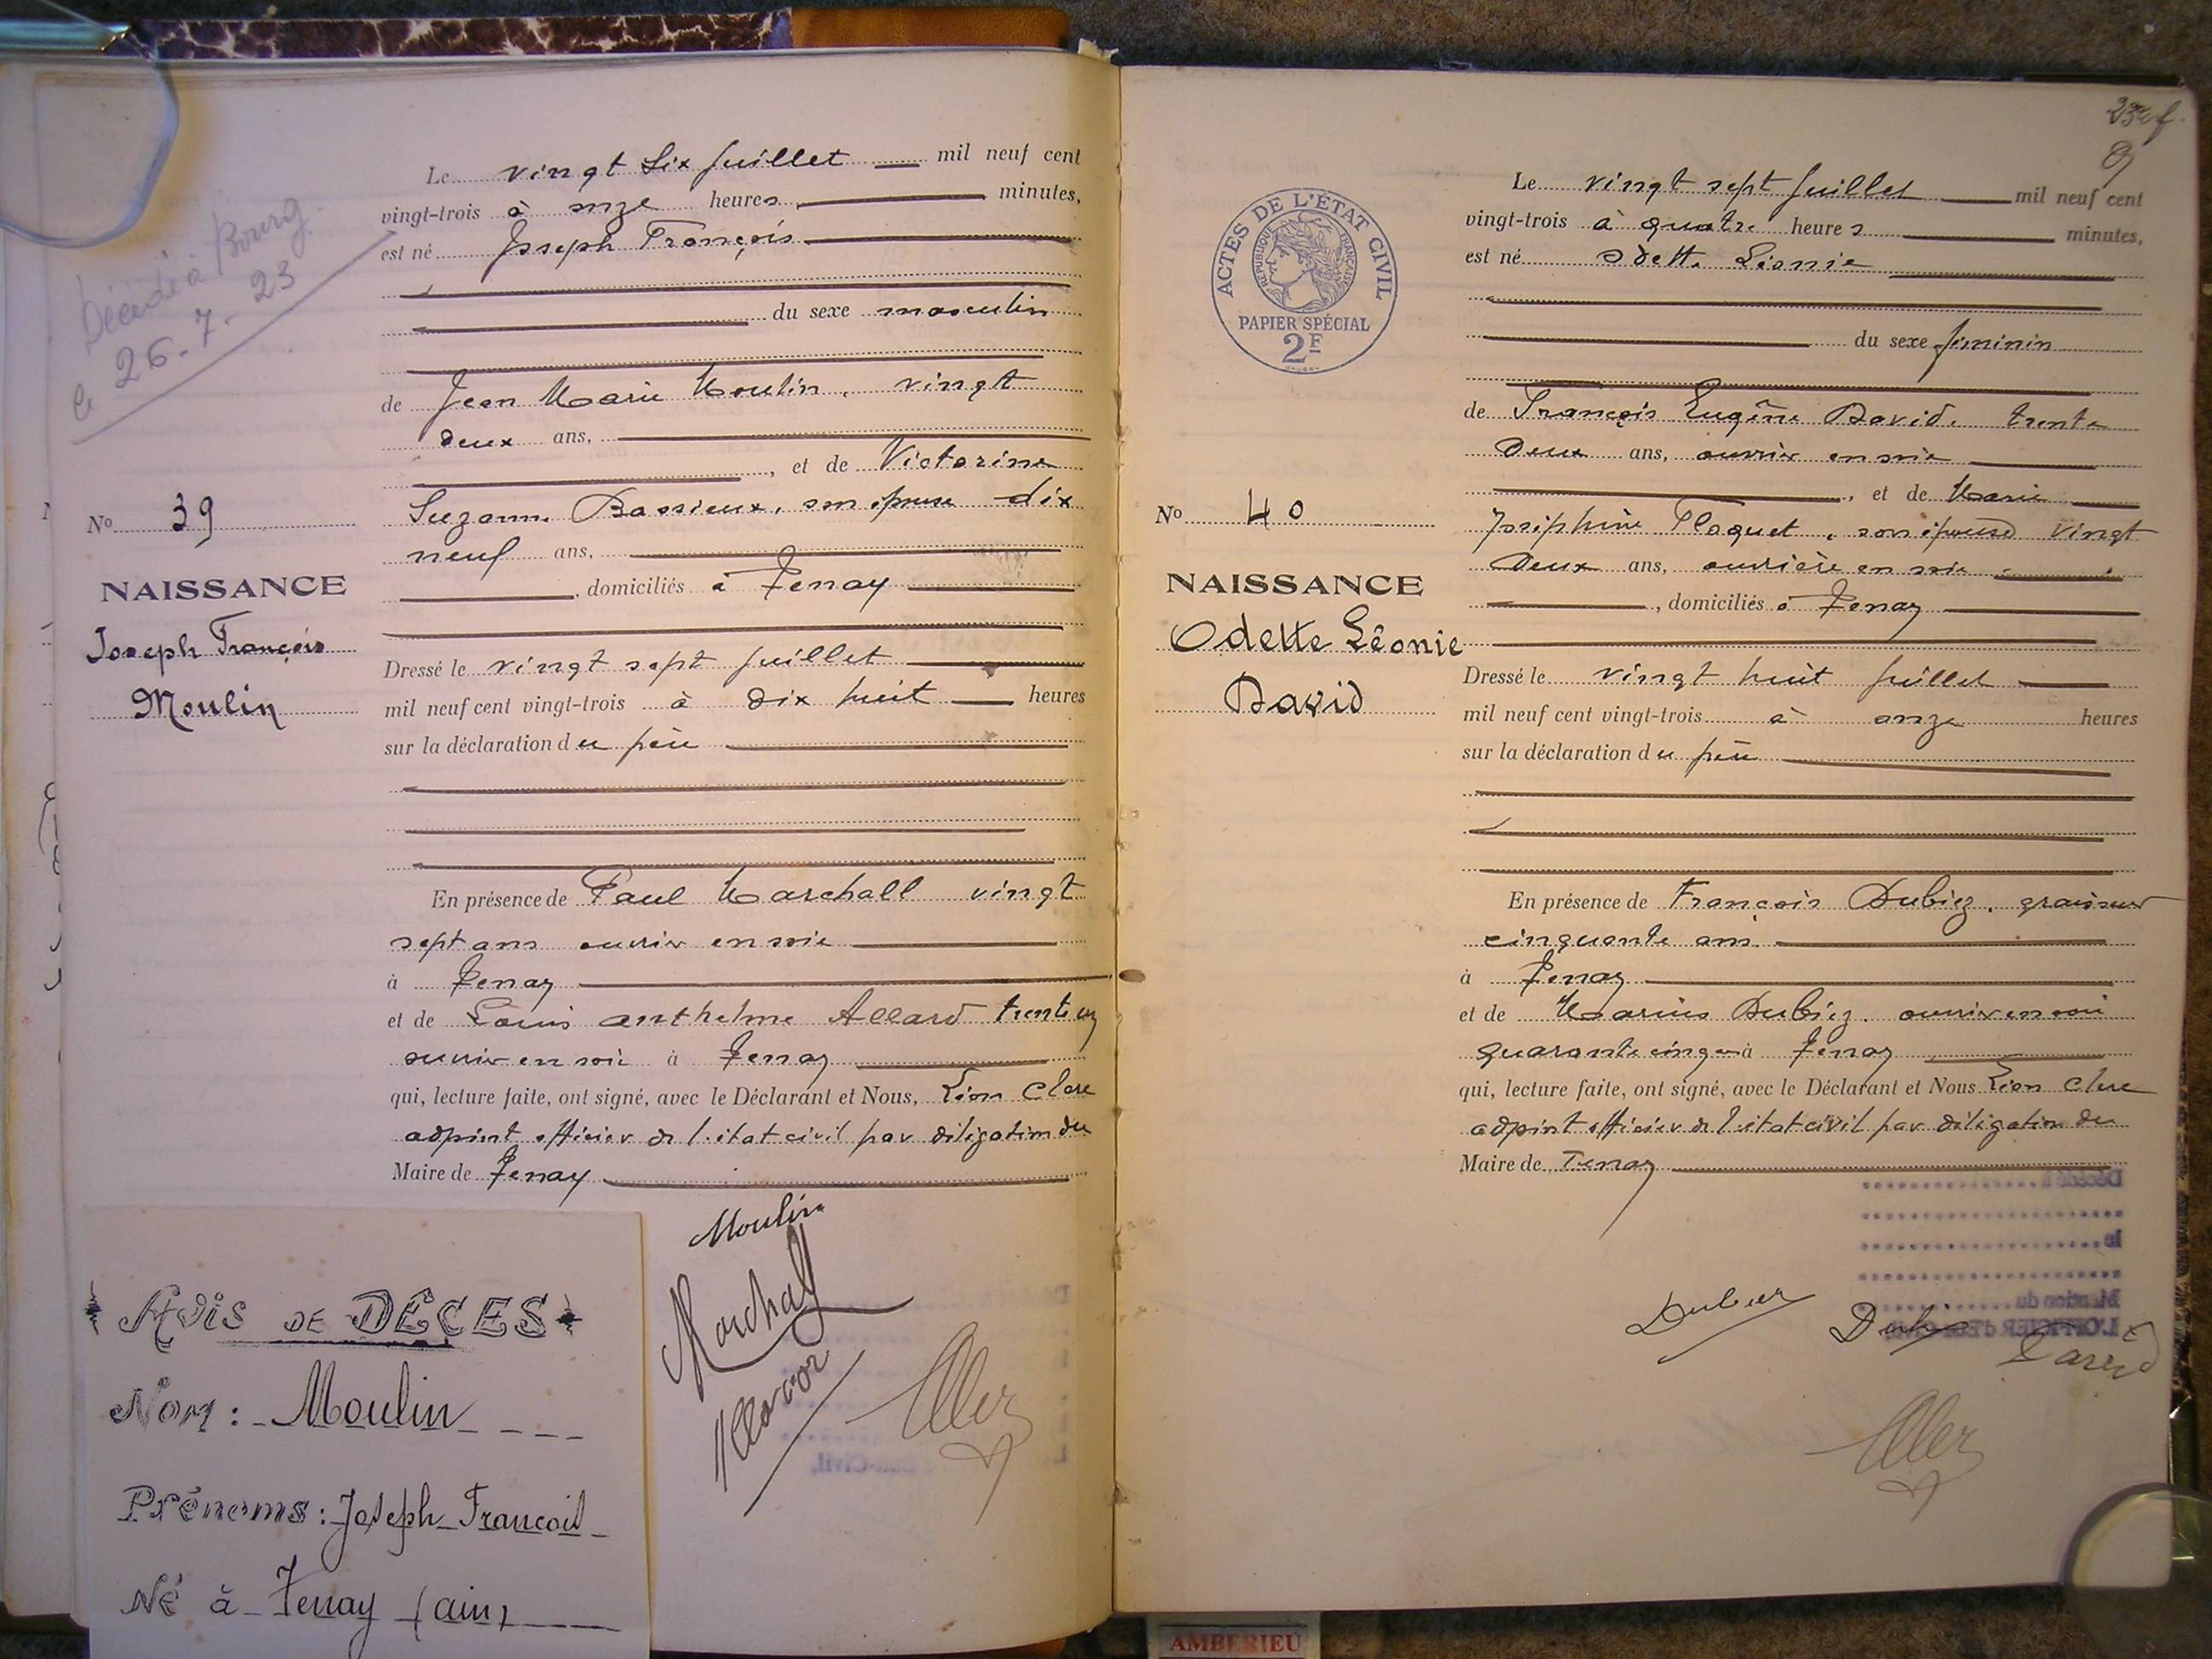 Décédé à Bourg
le 26-7-23
No 39
NAISSANCE
Joseph François
Moulin
Le vingt six juillet mil neuf cent
vingt-trois à onze heures minutes,
est né Joseph François
du sexe masculin
de Jean Marie Moulin, vingt
deux ans,
, et de Victorine
Suzanne Bassieux, son épouse dix
neuf ans,
, domiciliés à Tenay
Dressé le vingt sept juillet
mil neuf cent vingt-trois à dix huit heures
sur la déclaration du père
En présence de Paul Marchall vingt
sept ans ouvrier en soie
à Tenay
et de Louis anthelme Allard trente un
ouvrier en soie à Tenay
qui, lecture faite, ont signé, avec le Déclarant et Nous, Léon Clerc
adjoint officier de l'état civil par délégation du
Maire de Tenay
Moulin
Marchall
AVIS DE DÉCES
Nom : Moulin
Prénoms : Joseph François
Né à Tenay (ain)
ACTES DE L'ÉTAT CIVIL
RÉPUBLIQUE FRANÇAISE
PAPIER SPÉCIAL
2F
No 40
NAISSANCE
Odette Léonie
David
Le vingt sept juillet mil neuf cent
vingt-trois à quatre heures minutes,
est né Odette Léonie
du sexe féminin
de François Eugène David, trente
deux ans, ouvrier en soie
, et de Marie
Joséphine Plaquet, son épouse vingt
deux ans, ouvrière en soie
, domiciliés à Tenay
Dressé le vingt huit juillet
mil neuf cent vingt-trois à onze heures
sur la déclaration du père
En présence de François Dubiez, graisseur
cinquante ans
à Tenay
et de Marius Dubiez, ouvrier en soie
quarante cinq à Tenay
qui, lecture faite, ont signé, avec le Déclarant et Nous Léon Clerc
adjoint officier de l'état civil par délégation du
Maire de Tenay
David
AMBERIEU